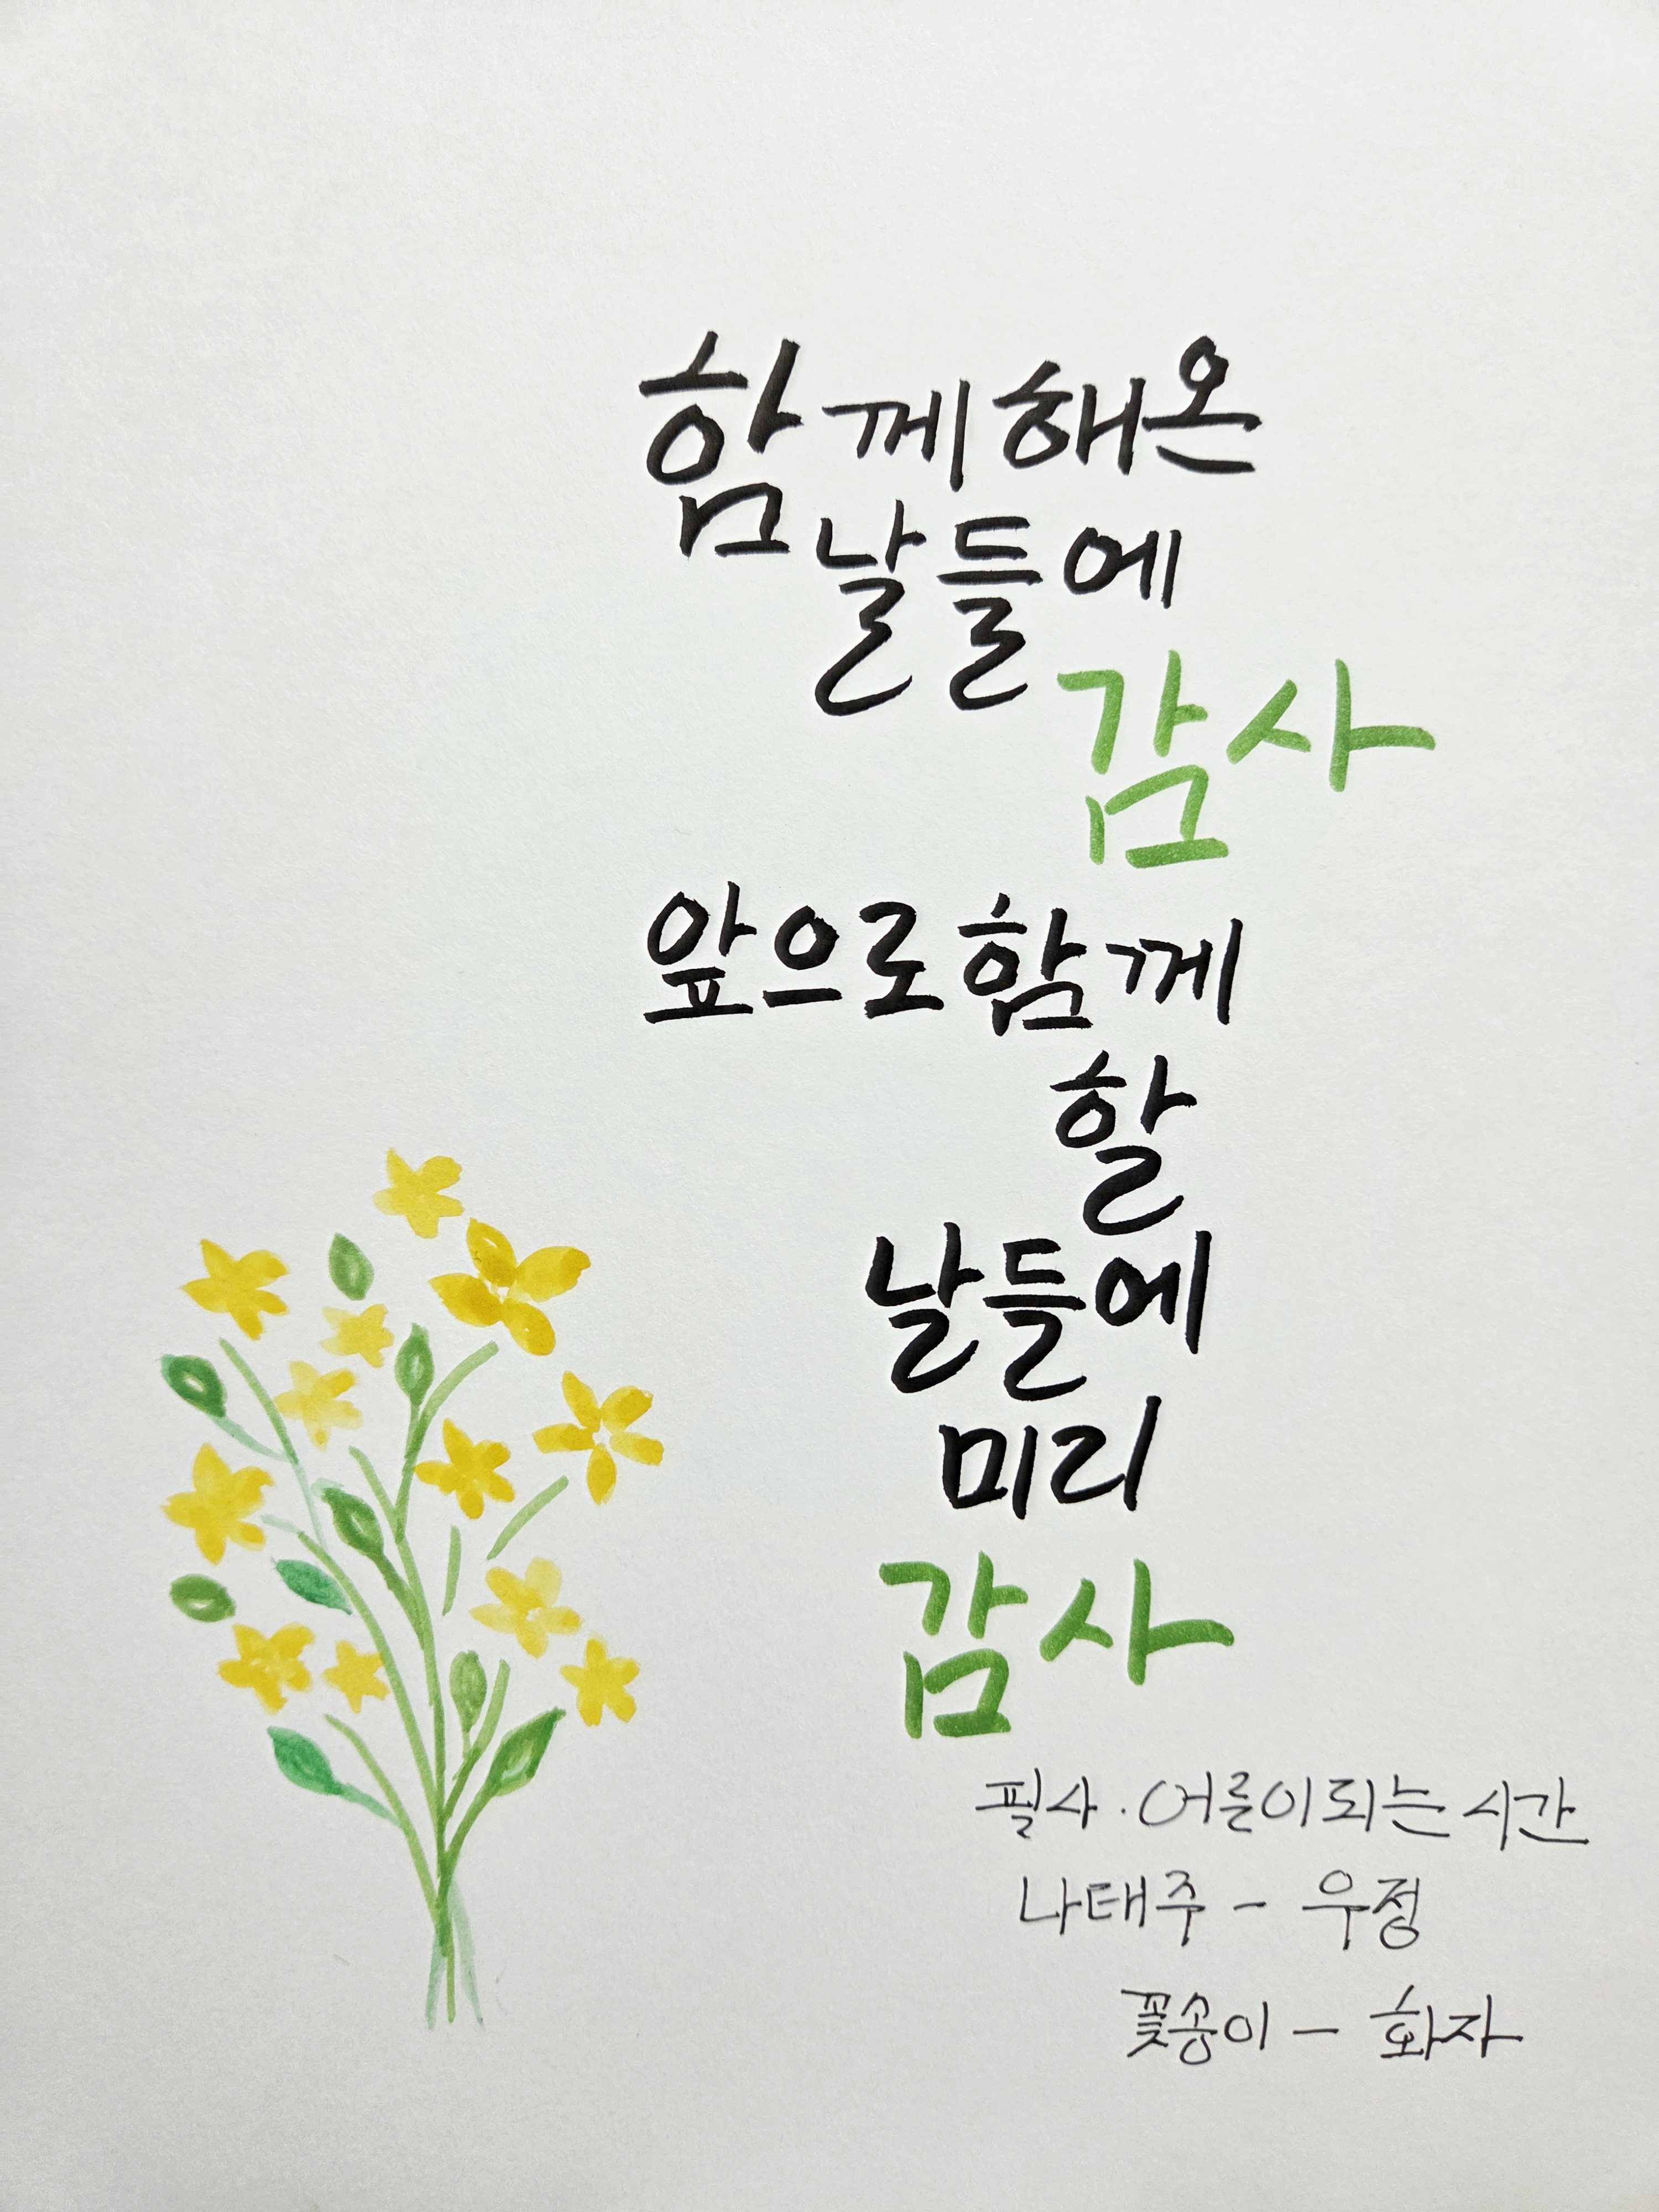 함께해온
날들에
감사
앞으로함께
할
날들에
미리
감사
필사·어른이되는시간
나태주 - 우정
꽃송이 - 화자